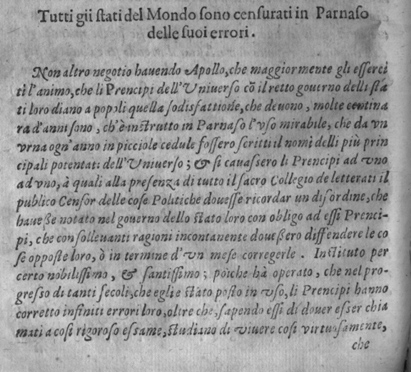 Tutti gii ſtati del Mondo ſono cenſurati in Parnaſo
delle ſuoi errori.
Non altro negotio hauendo Apollo, che maggiormente gli eſſerci
ti l'animo, che li Prencipi dell'Vniuerſo cõ il retto gouerno delli ſta
ti loro diano a popoli quella ſodisfattione, che deuono, molte centina
ra d'anni ſono, ch'è inſtrutto in Parnaſo l'vſo mirabile, che da vn
vrna ogn'anno in picciole cedule foſſero ſcritti li nomi delli più prin
cipali potentati dell'Vniuerſo; & ſi cauaſſero li Prencipi ad vno
ad vno, à quali alla preſenza di tutto il ſacro Collegio de letterati il
publico Cenſor delle coſe Politiche doueſſe ricordar vn diſordine, che
haueße notato nel gouerno dello ſtato loro con obligo ad eſſi Prenci-
pi, che con ſolleuanti ragioni incontanente doueßero diffendere le co
ſe oppoſte loro, ò in termine d'vn meſe correggerle. Inſtituto per
certo nobiliſſimo, & ſantiſſimo; poiche hà operato, che nel pro-
greſſo di tanti ſecoli, che egli e ſtato poſto in vſo, li Prencipi hanno
corretto infiniti errori loro, oltre che, ſapendo eſſi di douer eſſer chia
mati a coſi rigoroſo eſſame, ſtudiano di viuere coſi virtuoſamente,
che